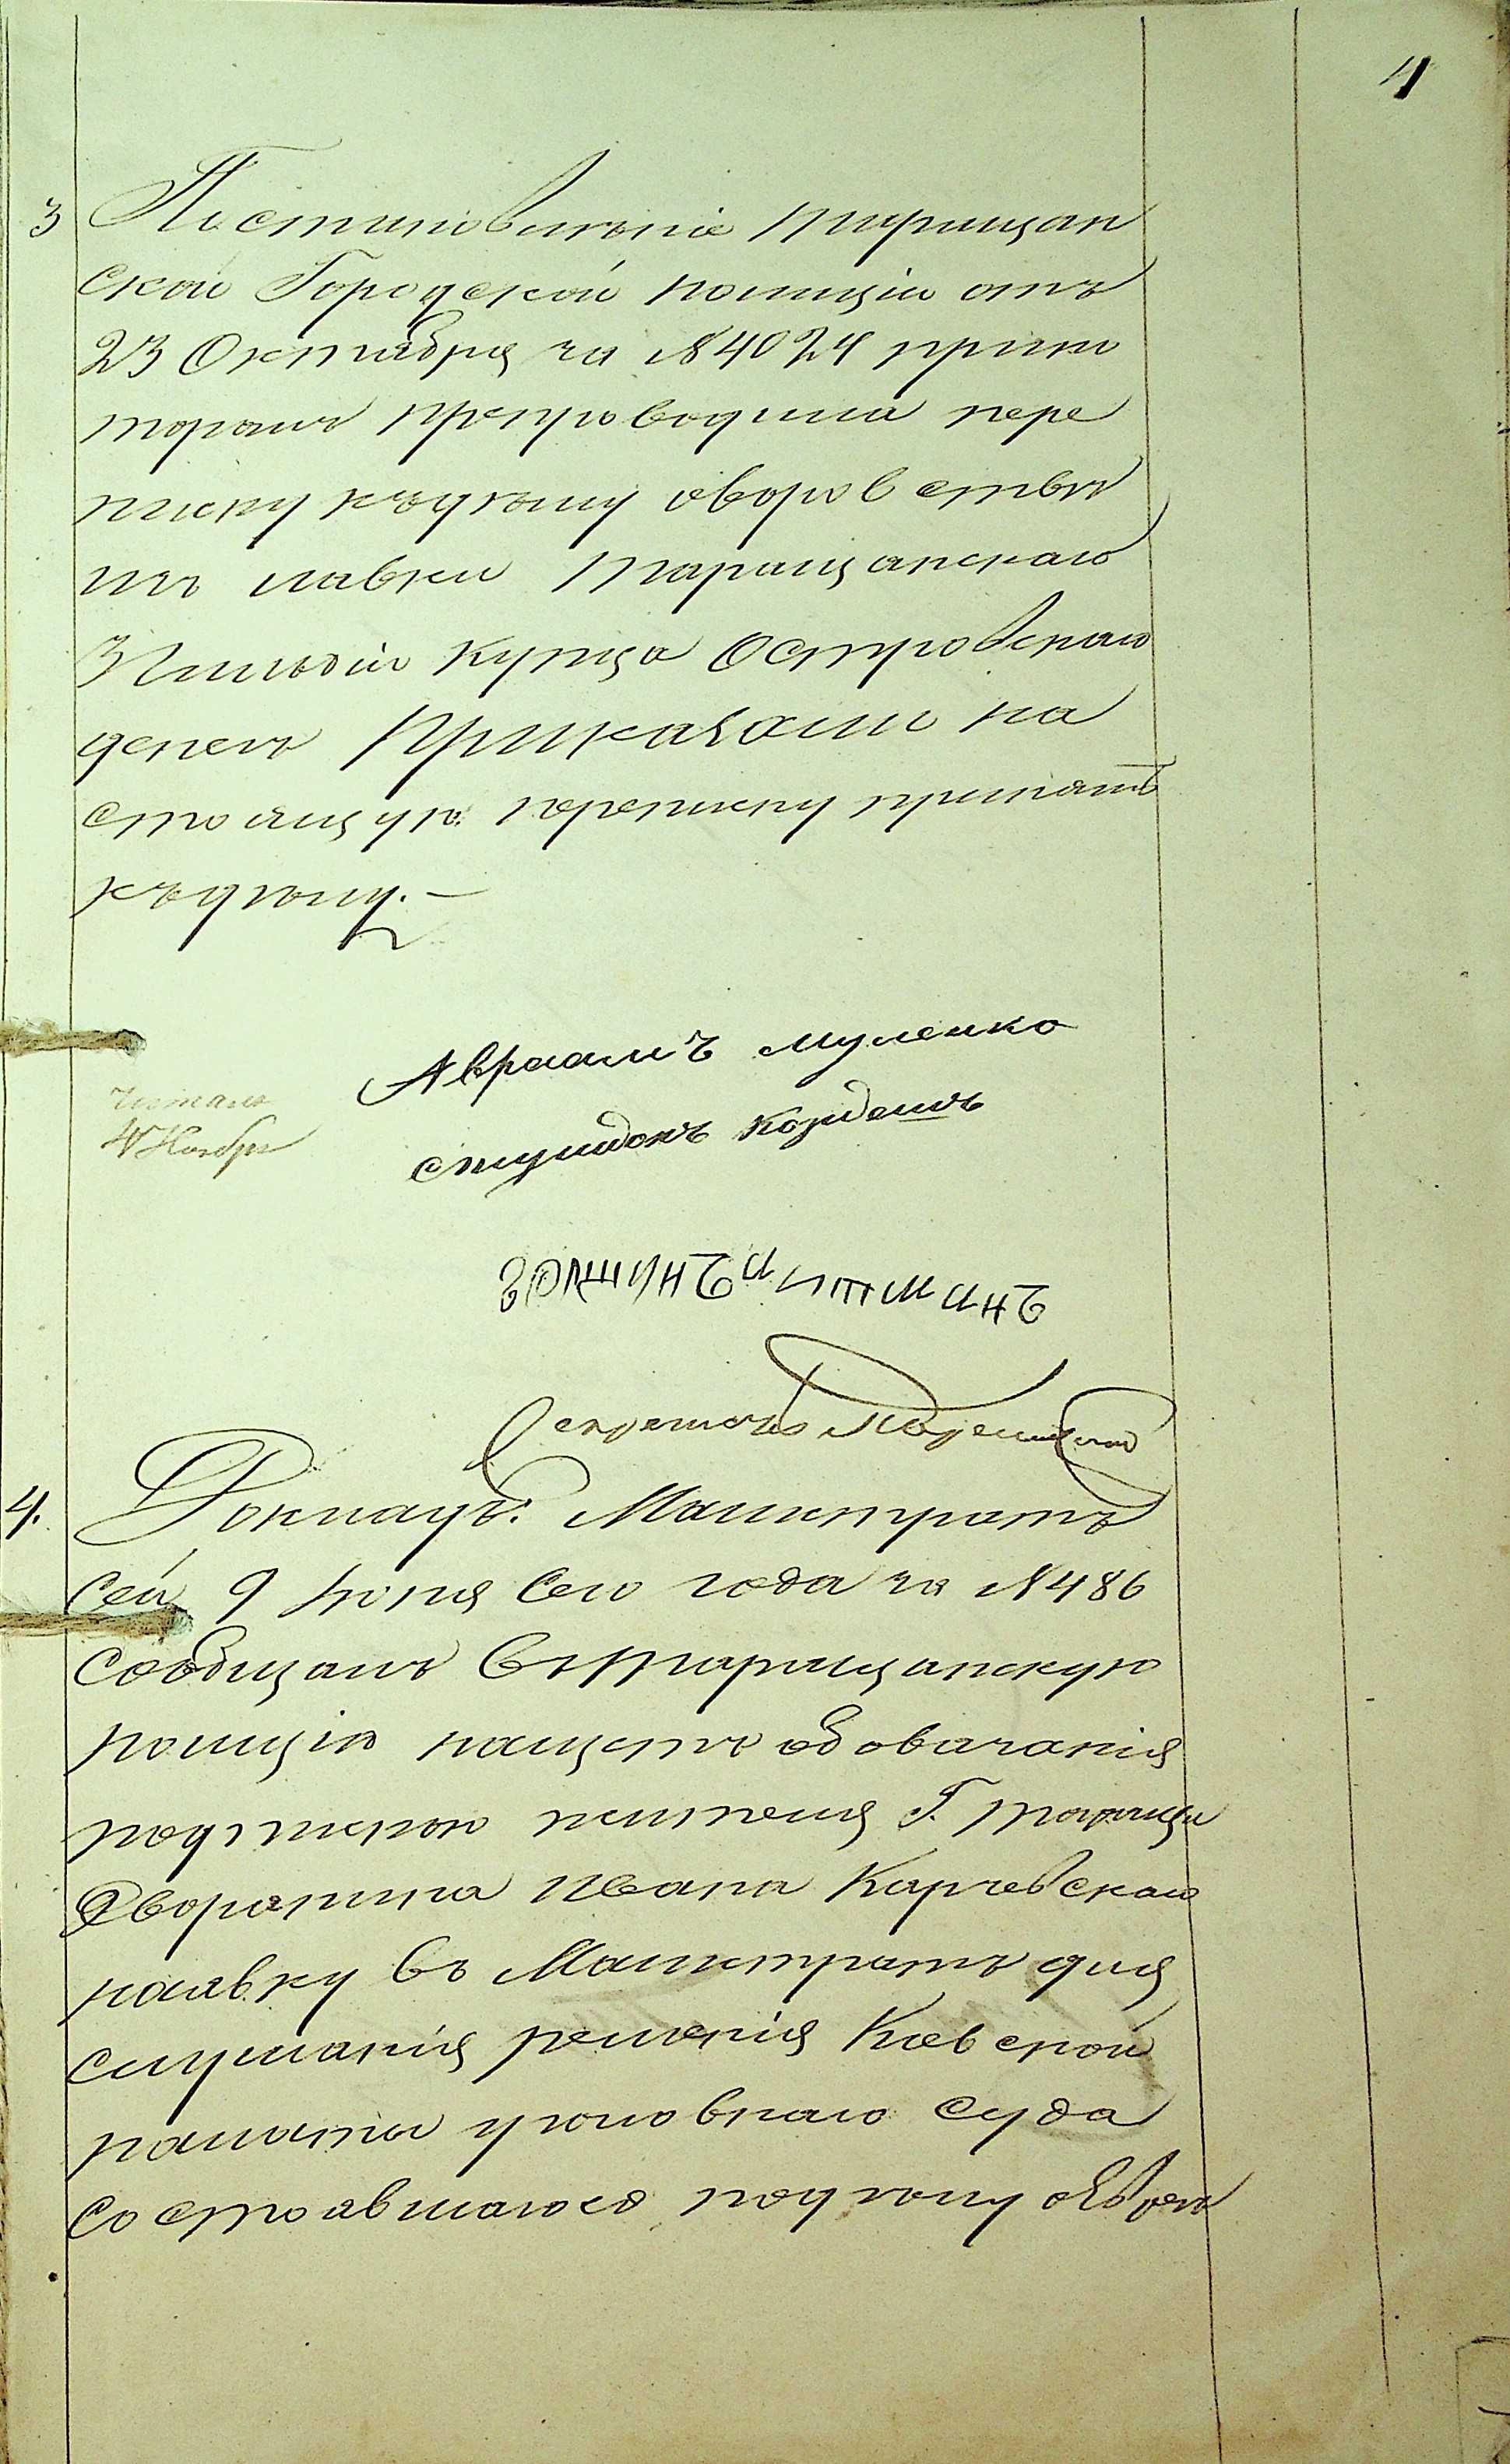 4
3 Постановленіе Таращан
ской Городской полиціи отъ
23 Октября за №4024 прико
торомъ препроводила пере
писку къдѣлу оворовствѣ
изъ лавки Таращанскаго
3 Гильдіи купца Островскаго
денегъ Приказали на
стоящую переписку принять
къдѣлу.—
Авраамъ Муленко
Читалъ
4 Ноябр
Секретарь
4. Докладъ: Магистратъ
сей 9 Іюня сего года за №486
сообщалъ въТаращанскую
полицію нащетъ обовязанія
подпискою жителя Г. Таращи
Дворянина Ивана Карчевскаго
наявку въ Магистратъ для
слушанія решенія Кіевской
палаты уголовнаго суда
состоявшагося подѣлу